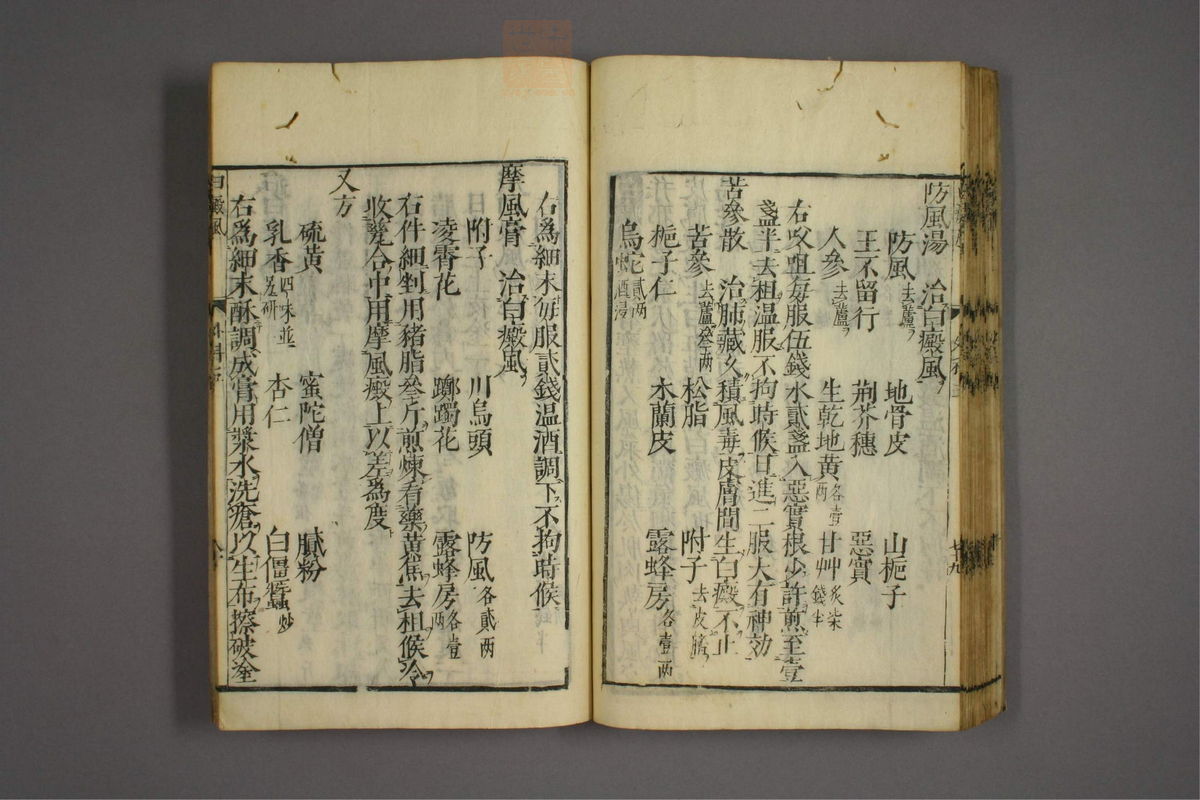 防風湯 治白癜風
防風去蘆 地骨皮 山梔子
王不留行 荆芥穗 惡實
人參去蘆 生乾地黃各壹兩 甘艸炙柒錢半
右㕮咀每服伍錢水貳盞入惡實根少許煎至壹
盞半去柤温服不拘時候日進二服大有神効
苦參散 治肺藏久積風毒皮膚間生白癜不止
苦參去蘆叁兩 松脂 附子去皮臍
梔子仁 木蘭皮 露蜂房各壹兩
烏蛇貳兩酒浸
右爲細末每服貳錢温酒調下不拘時候
摩風膏 治白癜風
附子 川烏頭 防風各貳兩
凌霄花 躑躅花 露蜂房各壹兩
右件細剉用豬脂叁斤煎煉看藥黃焦去柤候冷
收甆合中用摩風癜上以差爲度
又方
硫黃 蜜陀僧 膩粉
乳香四味並另研 杏仁 白僵蠶炒
右爲細末酥調成膏用漿水洗瘡以生布擦破塗
白癜風